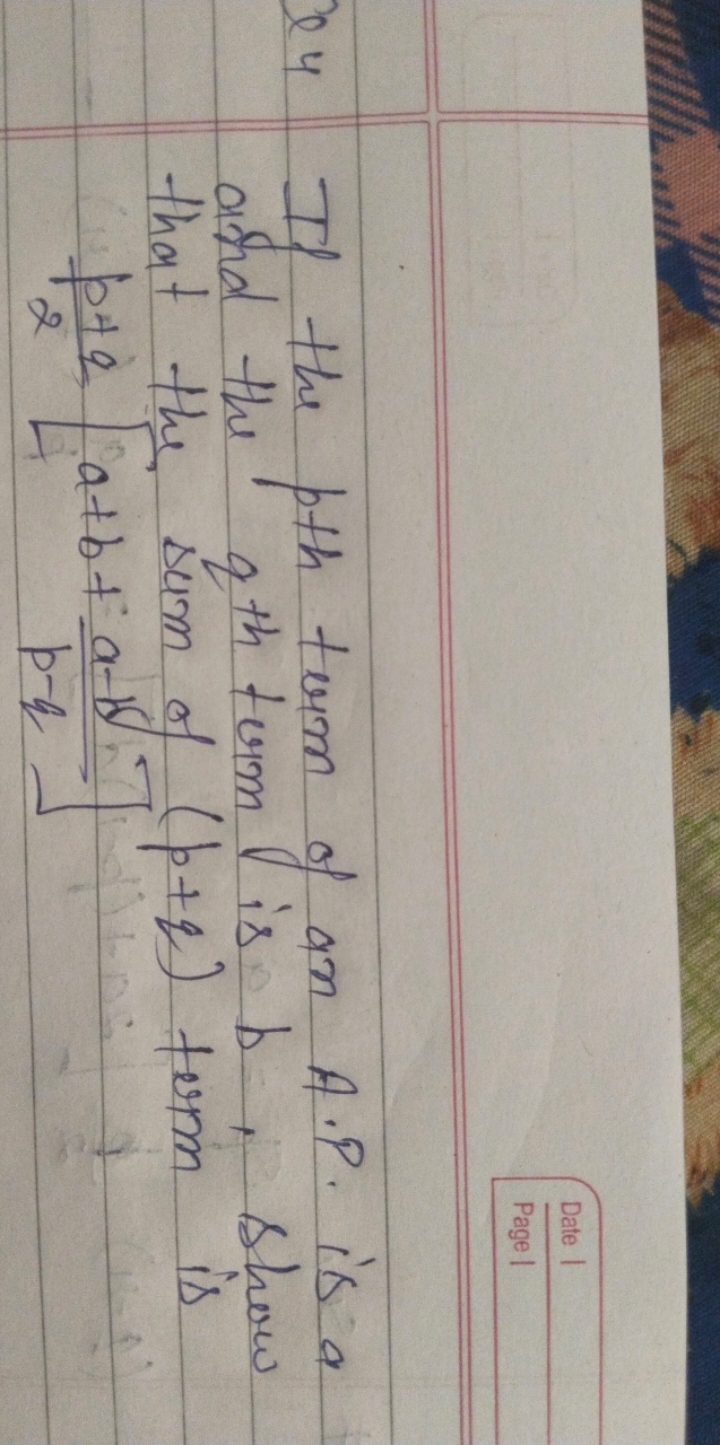 Date |
Page |
If the pth term of an A.P. is a
and the qth term is b, show
that the sum of (p+q) term is
p+q/2 [a+b+ a-b/p-q]